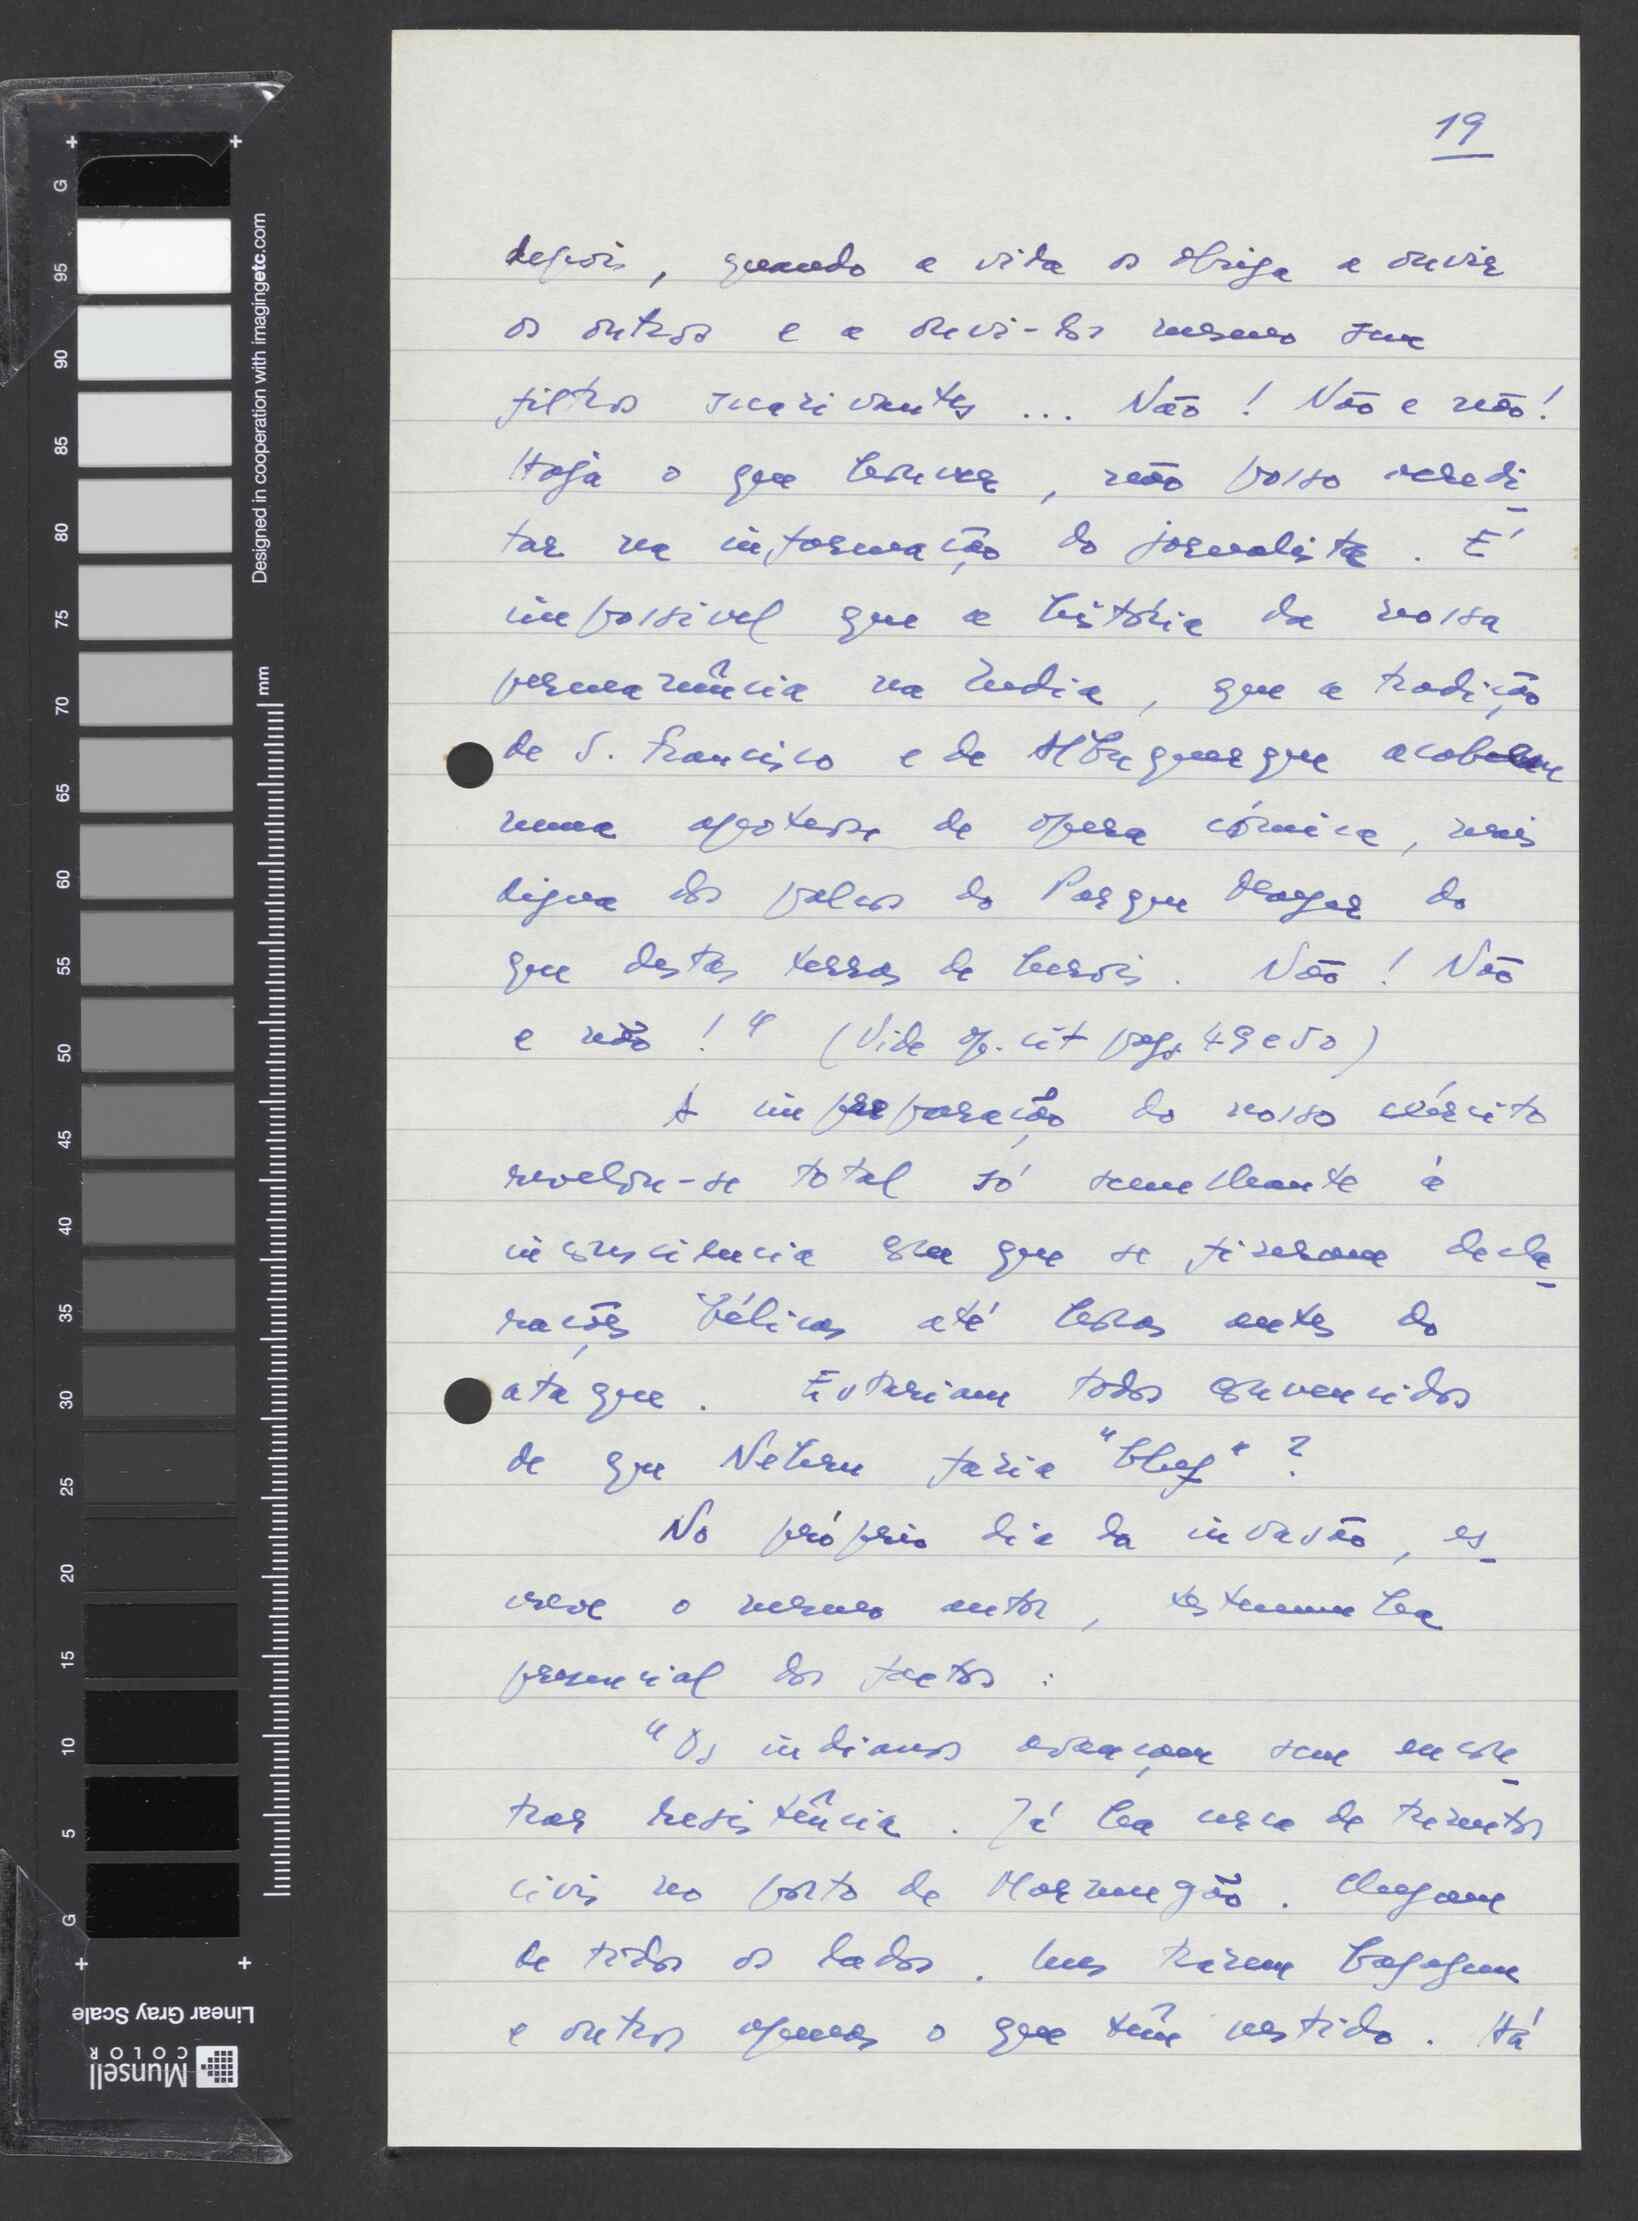 19
depois, quando a vida os obriga a ouvir
os outros e a ouvi-los mesmo sem
filtros suavizantes ... Não! Não e não!
Haja o que houver, não posso acredi-
tar na informação do jornalista. É
impossivel que a história da nossa
permanência na India, que a tradição
de S. Francisco e de Albuquerque acabem
numa apoteose de opera cómica, mais
digna dos palcos do Parque Mayer do
que destas terras de herois. Não! Não
e não!" (Vide op. cit pags. 49 e 50)
A impreparação do nosso exército
revelou-se total só semelhante á
inconsciencia com que se fizeram decla-
rações bélicas até horas antes do
ataque. Estariam todos convencidos
de que Nehru faria "bluf"?
No próprio dia da invasão, es-
creve o mesmo autor, testemunha
presencial dos factos:
"Os indianos avançam sem encon-
trar resistência. Já ha cerca de trezentos
civis no porto de Mormugão. Chegam
de todos os lados. Uns trazem bagagem
e outros apenas o que têm vestido. Há
Designed in cooperation with imagingetc.com
mm
G
95
90
85
80
75
70
65
60
55
50
45
40
35
30
25
20
15
10
5
G
Linear Gray Scale
Munsell
COLOR